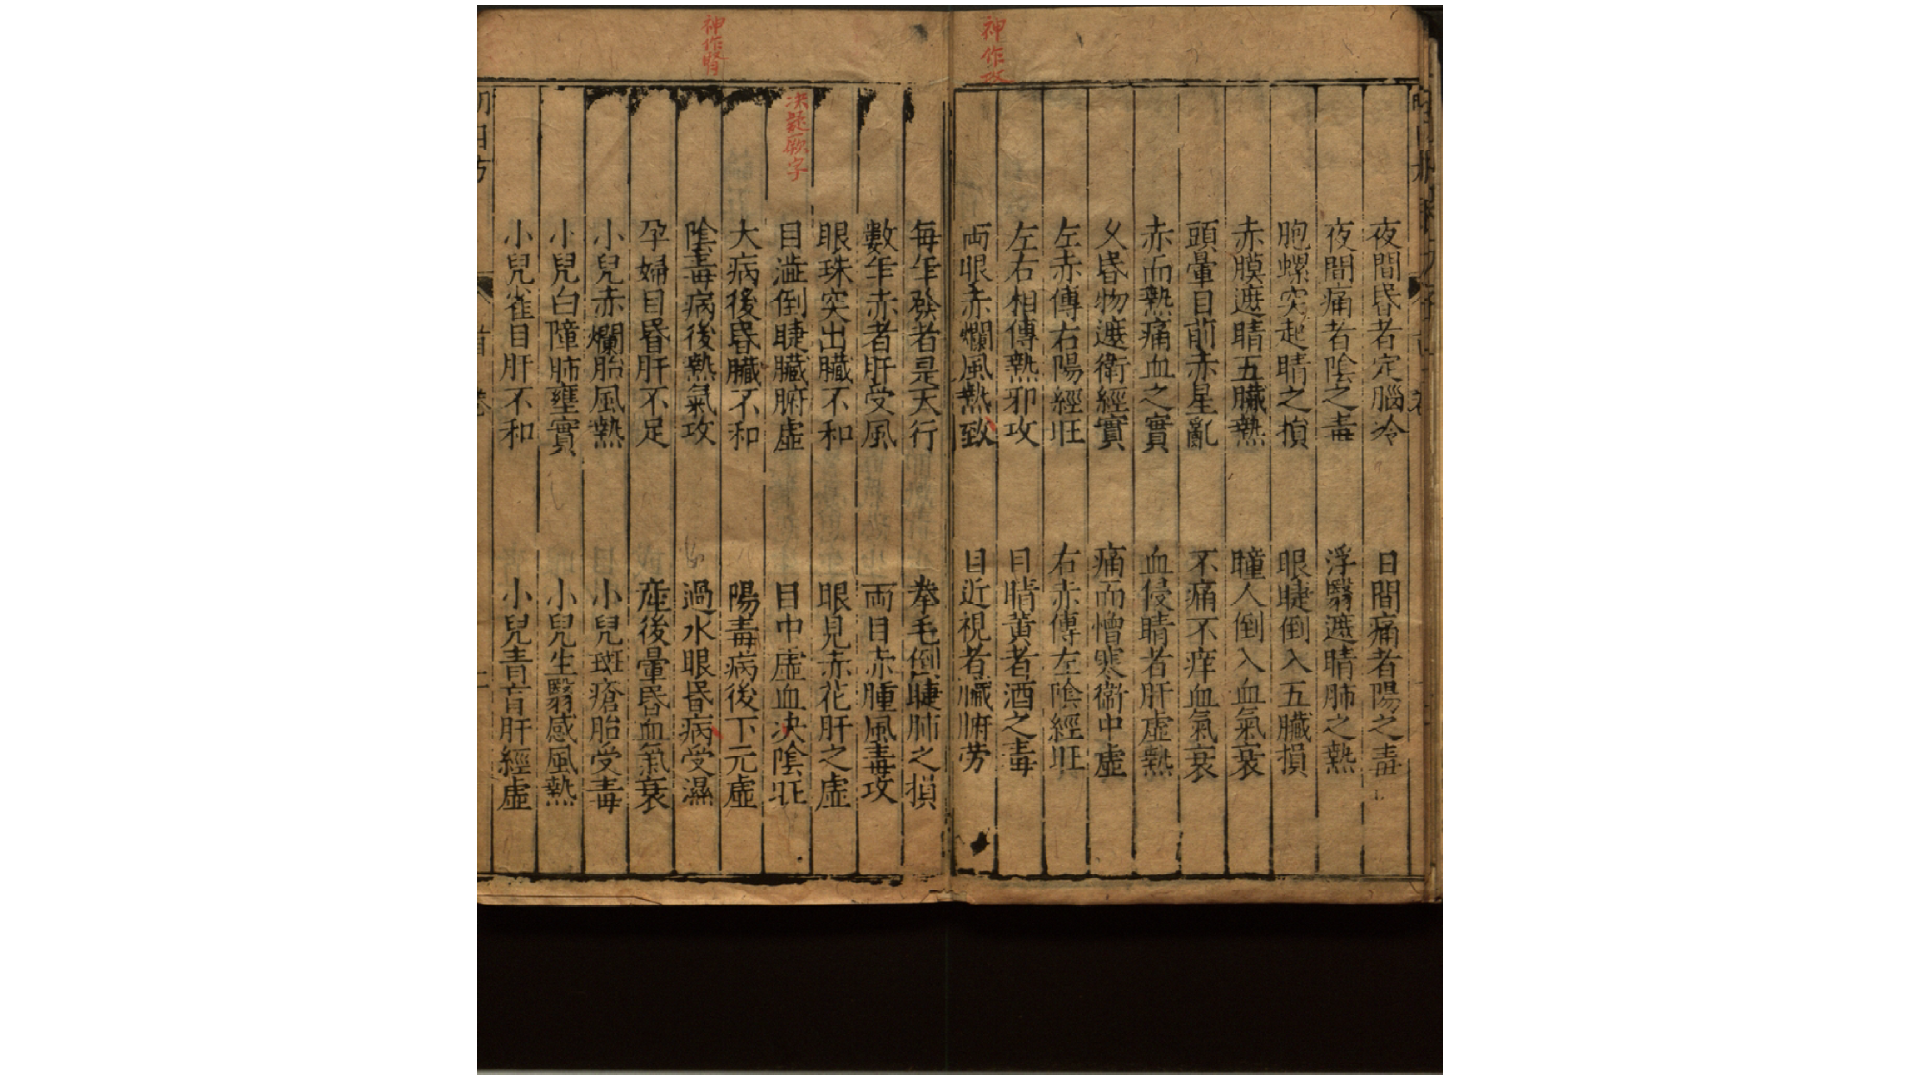 夜間昏者定腦冷
日間痛者陽之毒
夜間痛者陰之毒
浮翳遮睛肺之熱
胞螺突起睛之損
眼睫倒入五臟損
赤膜遮睛五臟熱
瞳人倒入血氣衰
頭暈目前赤星亂
不痛不痒血氣衰
赤而熱痛血之實
血侵睛者肝虛熱
久昏物遮衛經實
痛而憎寒衛中虛
左赤傳右陽經旺
右赤傳左陰經旺
左右相傳熱邪攻
目睛黃者酒之毒
神作攻
両眼赤爛風熱致
目近視者臟腑劳
每年發者是天行
拳毛倒睫肺之損
數年赤者肝受風
両目赤腫風毒攻
眼珠突出臟不和
眼見赤花肝之虛
目澁倒睫臟腑虛
目中虛血决陰旺
大病後昏臟不和
陽毒病後下元虛
神作腎
陰毒病後熱氣攻
過水眼昏病受濕
孕婦目昏肝不足
産後暈昏血氣衰
小兒赤爛胎風熱
小兒斑瘡胎受毒
小兒白障肺壅實
小兒生翳感風熱
小兒雀目肝不和
小兒青盲肝經虛
首卷